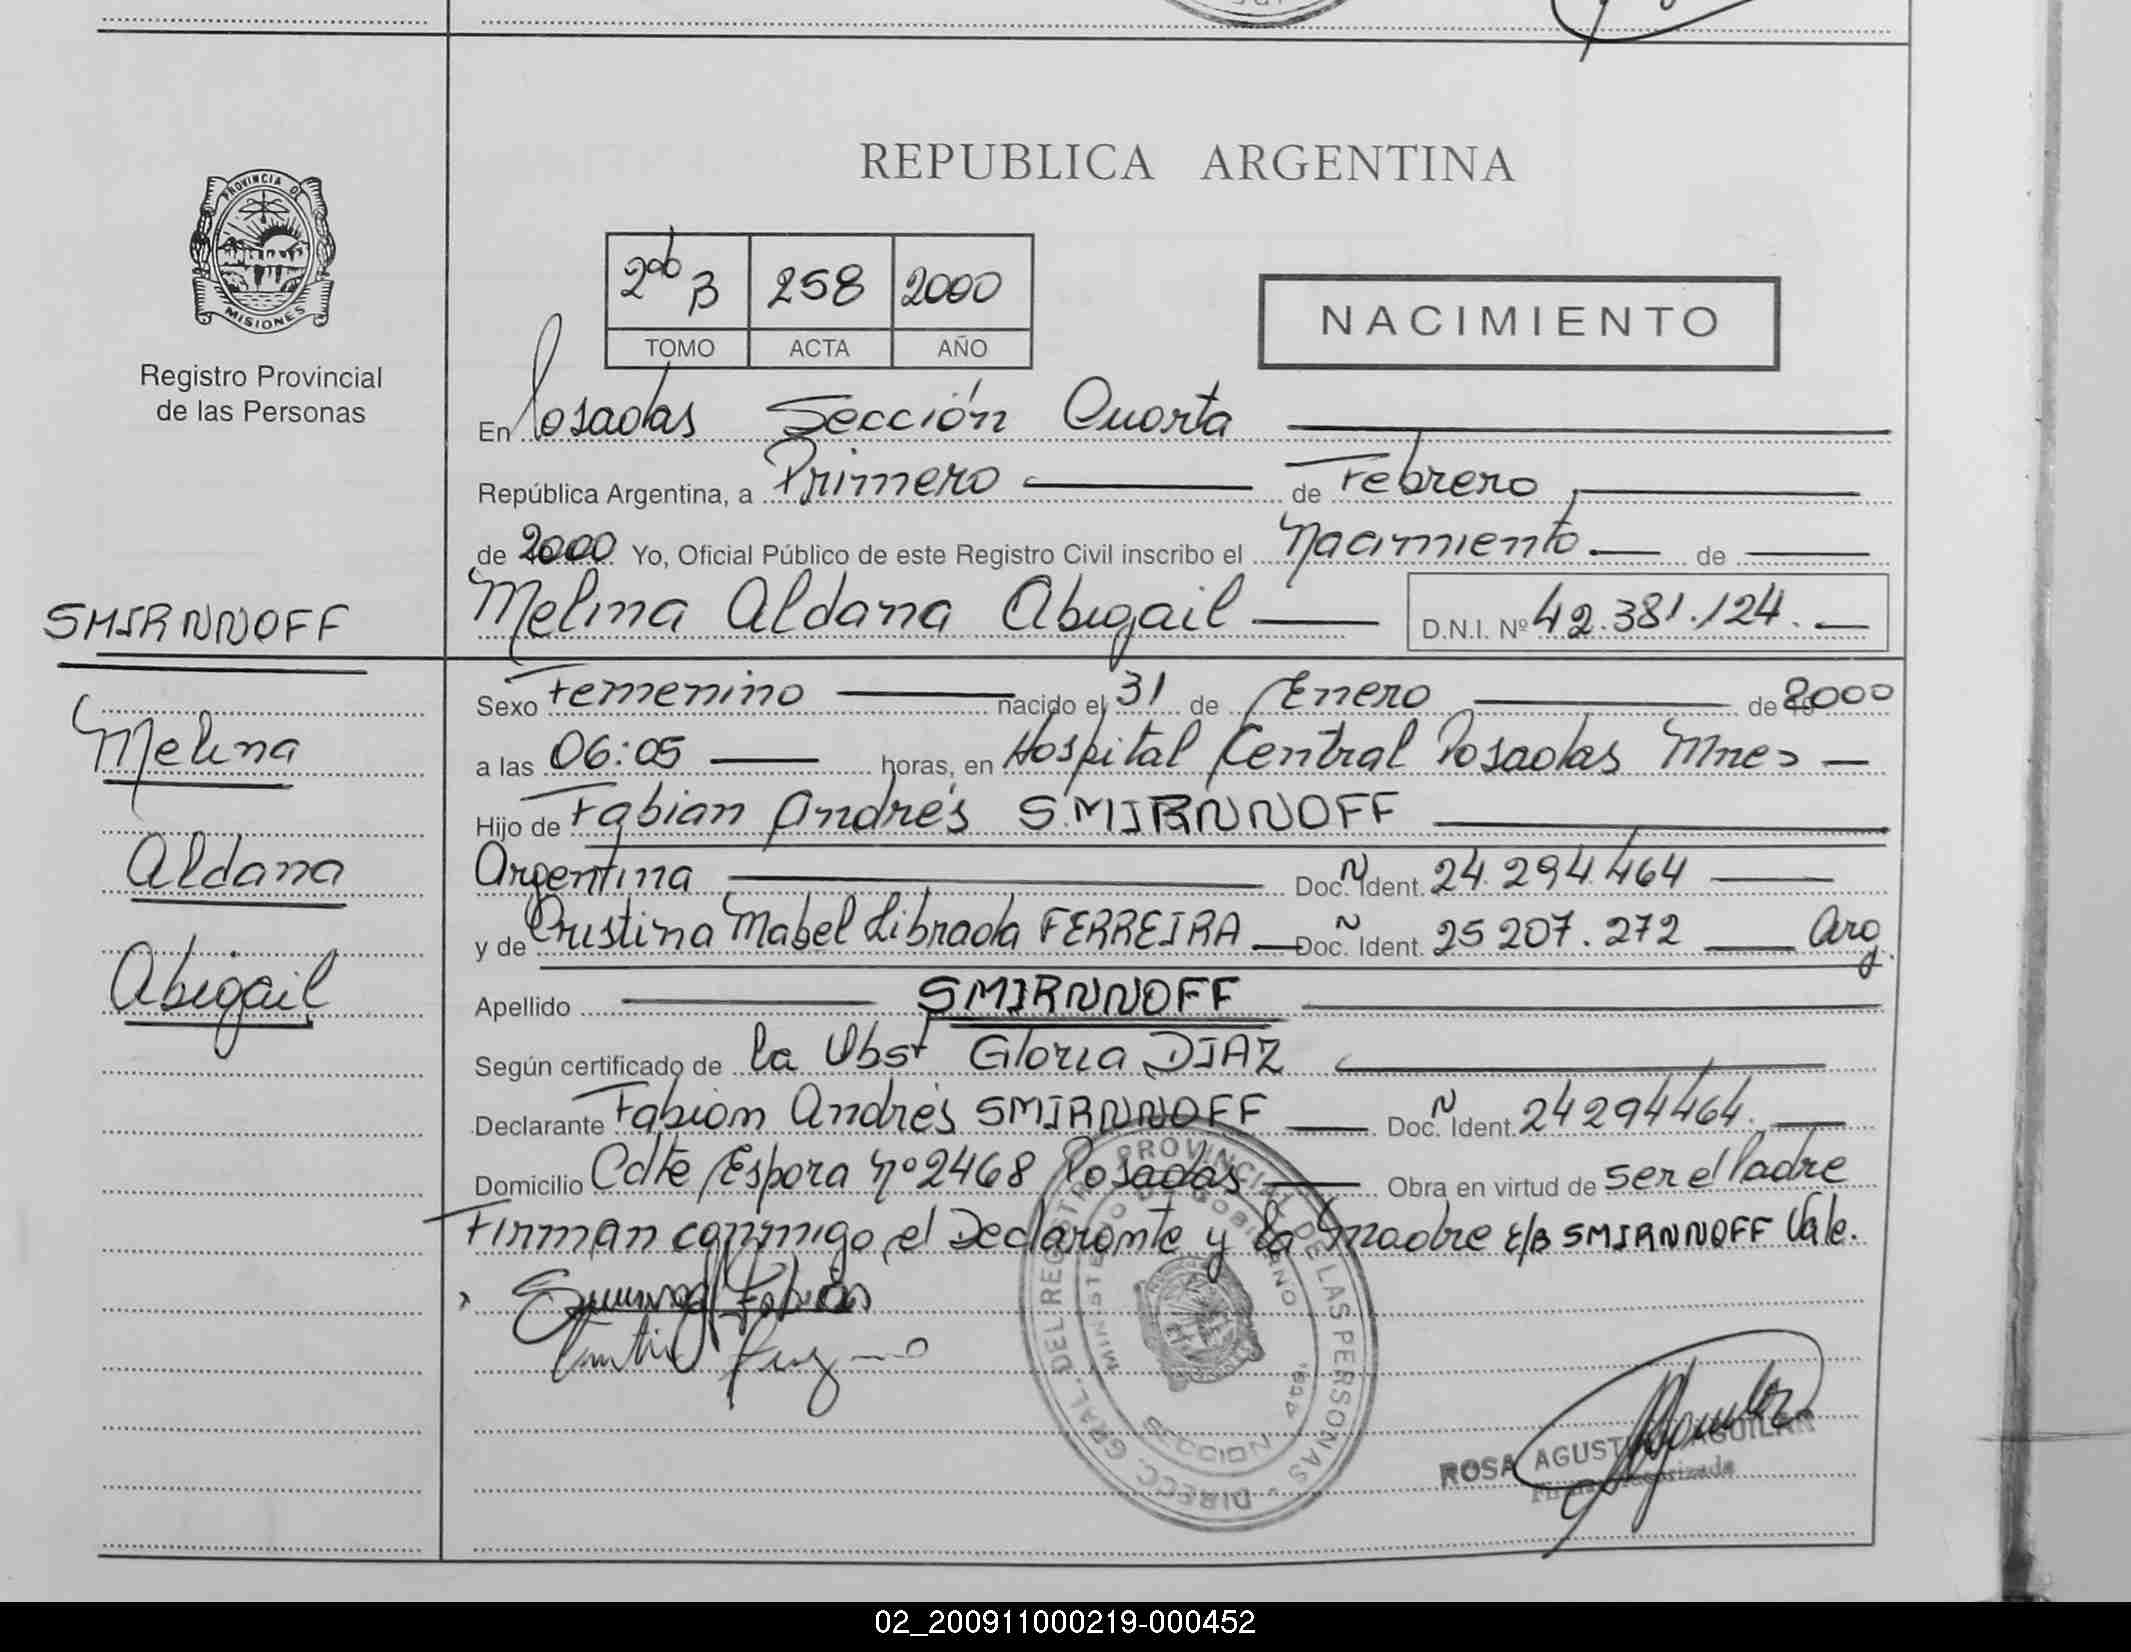 REPUBLICA ARGENTINA
PROVINCIA DE
MISIONES
Registro Provincial
de las Personas
2do B 258 2000
TOMO ACTA AÑO
NACIMIENTO
En Posadas Sección Cuarta
República Argentina, a Primero de Febrero
de 2000 Yo, Oficial Público de este Registro Civil inscribo el Nacimiento de
Melina Aldana Abigail D.N.I. Nº 42.381.124.
SMIRNNOFF
Melina
Aldana
Abigail
Sexo Femenino nacido el 31 de Enero de 2000
a las 06:05 horas, en Hospital Central Posadas Mnes
Hijo de Fabian Andrés SMIRNNOFF
Argentina Doc. Ident. 24.294.464
y de Cristina Mabel Librada FERREIRA Doc. Ident. 25 207.272 Arg.
Apellido SMIRNNOFF
Según certificado de la Obst Gloria DIAZ
Declarante Fabian Andrés SMIRNNOFF Doc. Ident. 24294464.
Domicilio Cdte Espora nº 2468 Posadas Obra en virtud de ser el Padre
Firman conmigo el Declarante y la madre E/B SMIRNNOFF Vale.
DIREC. GRAL. DEL REGISTRO PROVINCIAL DE LAS PERSONAS
MINISTERIO DE GOBIERNO
SECCION
ROSA AGUSTINA AGUILAR
Firma Autorizada
02_200911000219-000452